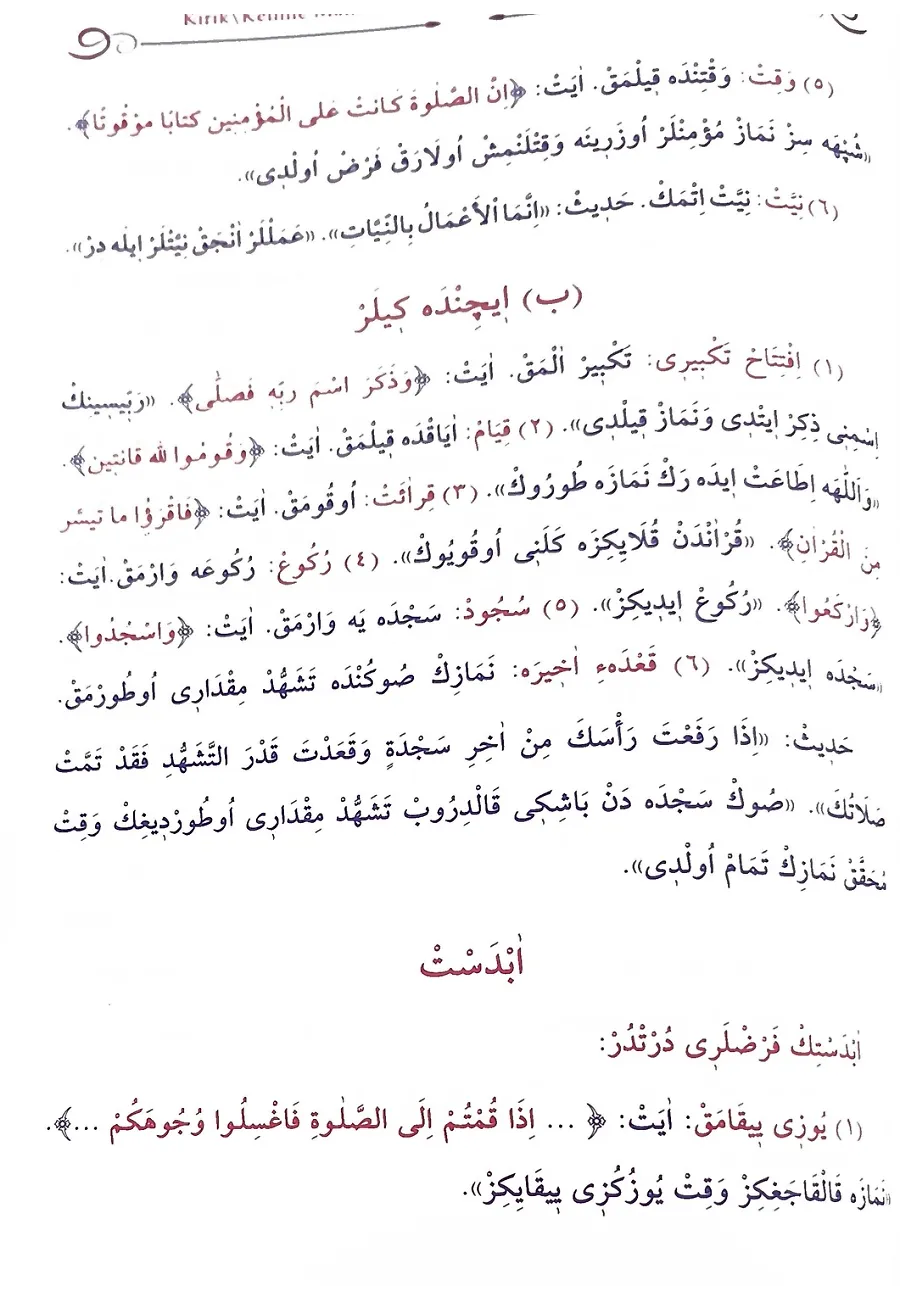 Kırık\Kelime
(٥) وَقِتْ: وَقْتِنْدَه قِيلْمَقْ. اٰيَتْ: ﴿اِنَّ الصَّلٰوةَ كَانَتْ عَلَى الْمُؤْمِنِينَ كِتَابًا مَوْقُوتًا﴾.
«شُبْهَه سِزْ نَمَازْ مُؤْمِنْلَرْ اُوزَرِينَه وَقِتْلَنْمِشْ اُولَارَقْ فَرْضْ اُولْدِى».
(٦) نِيَّتْ: نِيَّتْ اِتْمَكْ. حَدِيثْ: «اِنَّمَا اْلاَعْمَالُ بِالنِّيَّاتِ». «عَمَلْلَرْ اَنْجَقْ نِيَّتْلَرْ اِيلَه دِرْ».
(ب) اِيچِنْدَه كِيلَرْ
(١) اِفْتِتَاحْ تَكْبِيرِى: تَكْبِيرْ اٰلْمَقْ. اٰيَتْ: ﴿وَذَكَرَ اسْمَ رَبِّهِ فَصَلّٰى﴾. «رَبِّيسِينِكْ
اِسْمِنِى ذِكِرْ اِيتْدِى وَنَمَازْ قِيلْدِى». (٢) قِيَامْ: اٰيَاقْدَه قِيلْمَقْ. اٰيَتْ: ﴿وَقُومُوا لِلّٰهِ قَانِتِينَ﴾.
«وَاَللّٰهَه اِطَاعَتْ اِيدَه رَكْ نَمَازَه طُورُوكْ». (٣) قِرَائَتْ: اُوقُومَقْ. اٰيَتْ: ﴿فَاقْرَؤُا مَا تَيَسَّرَ
مِنَ الْقُرْاٰنِ﴾. «قُرْاٰنْدَنْ قُلَايِكِزَه كَلَنِى اُوقُويُوكْ». (٤) رُكُوعْ: رُكُوعَه وَارْمَقْ.اٰيَتْ:
﴿وَارْكَعُوا﴾. «رُكُوعْ اِيدِيكِزْ». (٥) سُجُودْ: سَجْدَه يَه وَارْمَقْ. اٰيَتْ: ﴿وَاسْجُدُوا﴾.
«سَجْدَه اِيدِيكِزْ». (٦) قَعْدَهءِ اَخِيرَه: نَمَازِكْ صُوكُنْدَه تَشَهُّدْ مِقْدَارِى اُوطُورْمَقْ.
حَدِيثْ: «اِذَا رَفَعْتَ رَأْسَكَ مِنْ اٰخِرِ سَجْدَةٍ وَقَعَدْتَ قَدْرَ التَّشَهُّدِ فَقَدْ تَمَّتْ
صَلَاتُكَ». «صُوكْ سَجْدَه دَنْ بَاشِكِى قَالْدِرُوبْ تَشَهُّدْ مِقْدَارِى اُوطُورْدِيغِكْ وَقِتْ
مُحَقَّقْ نَمَازِكْ تَمَامْ اُولْدِى».
اٰبْدَسْتْ
اٰبْدَسْتِكْ فَرْضْلَرِى دُرْتْدُرْ:
(١) يُوزِى يِيقَامَقْ: اٰيَتْ: ﴿ ... اِذَا قُمْتُمْ اِلَى الصَّلٰوةِ فَاغْسِلُوا وُجُوهَكُمْ ...﴾.
«نَمَازَه قَالْقَاجَغِكِزْ وَقِتْ يُوزُكُزِى يِيقَايِكِزْ».